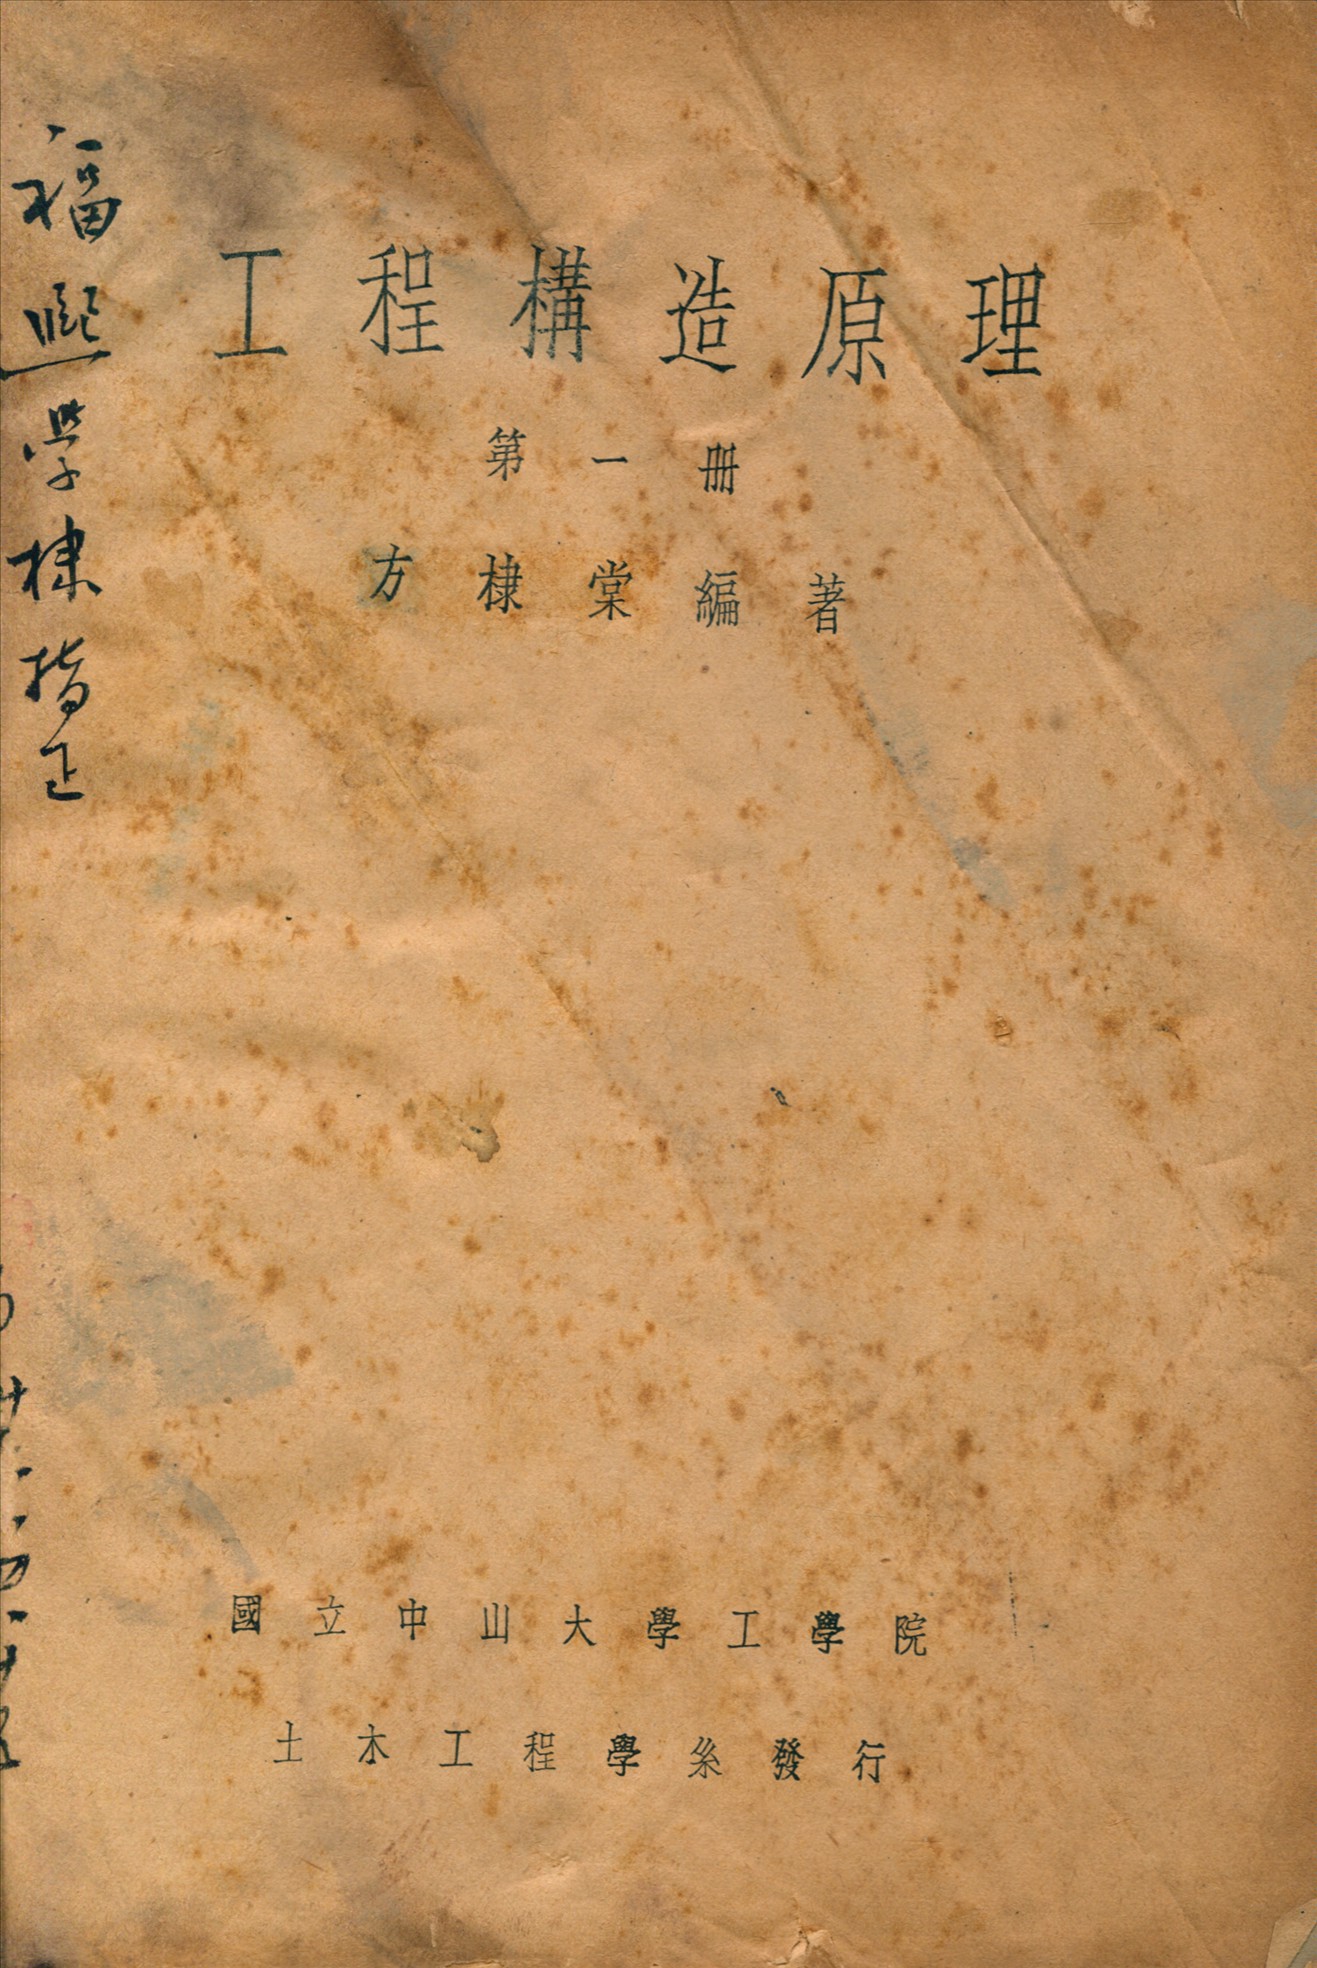 工程構造原理
第一冊
方棣棠編著
國立中山大學工學院
土木工程學系發行
福熙學棣指正